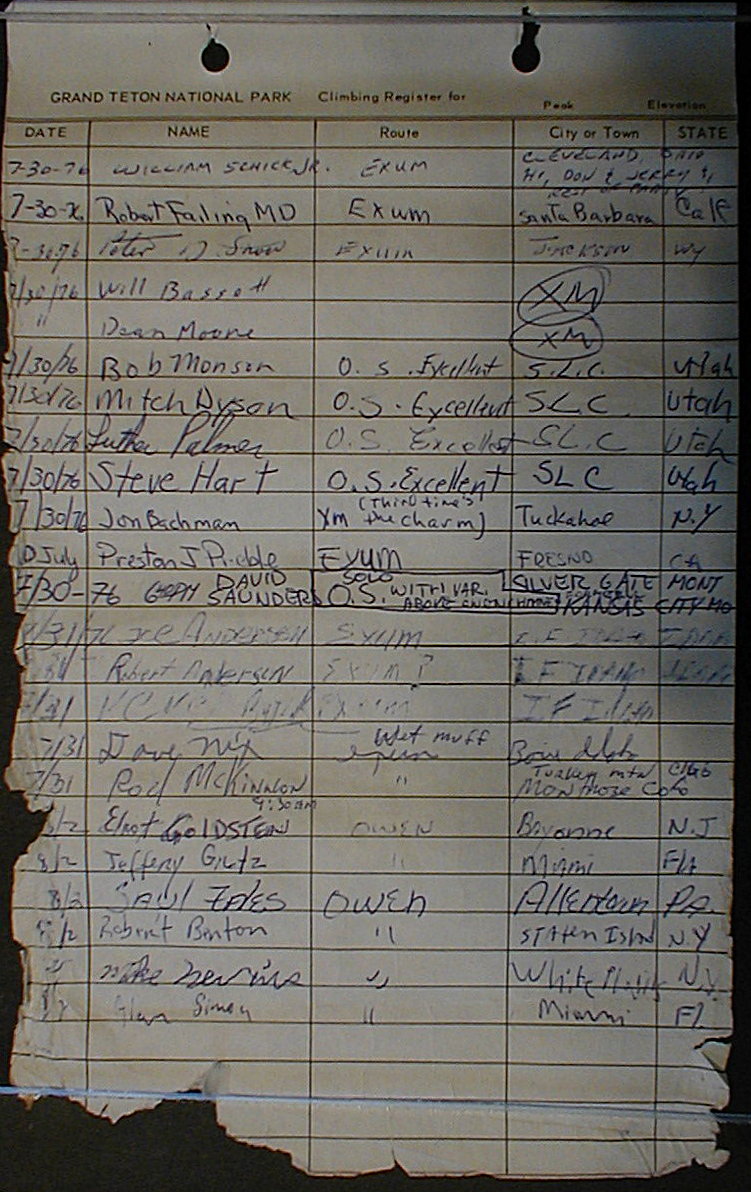 GRAND TETON NATIONAL PARK Climbing Register for Peak Elevation
DATE NAME Route City or Town STATE
7-30-76 WILLIAM SCHICK JR. EXUM CLEVELAND, OHIO
HI, DON & JERRY &
REST OF PARTY
7-30-76 Robert Failing MD Exum Santa Barbara Calif
7-30-76 Peter D. Snow Exum JACKSON WY
7/30/76 Will Bassett XM
" Dean Moore XM
7/30/76 Bob Monson O.S. Excellent S.L.C. Utah
7/30/76 Mitch Dyson O.S. Excellent SLC Utah
7/30/76 Luther Palmer O.S. Excellent SLC Utah
7/30/76 Steve Hart O.S. Excellent SLC Utah
(Third time's
7/30/76 Jon Bachman Xm the charm) Tuckahoe N.Y
30 July Preston J Exum FRESNO CA
7/30-76 DAVID SOLO SILVER GATE MONT
SAUNDERS O.S. WITH VAR. KANSAS CITY MO
ABOVE
7/31/76 ANDERSEN Exum I.F. IDAHO IDAHO
7/31 Robert Andersen Exum? I F IDAHO IDAHO
7/31 Exum I F Idaho
Wet muff
7/31 Dave Nix exum Boise Idaho
Turkey mtn Club
7/31 Rod McKinnon " Montrose Colo
9:30 am
8/2 Elliot GOLDSTEIN OWEN Bayonne N.J
8/2 Jeffery Gretz " Miami FLA
8/2 Saul Owen Allentown PA.
8/2 Robert Benton " STATEN ISLAND NY
Mike " White Plains N.Y.
Alan Simon " Miami FL